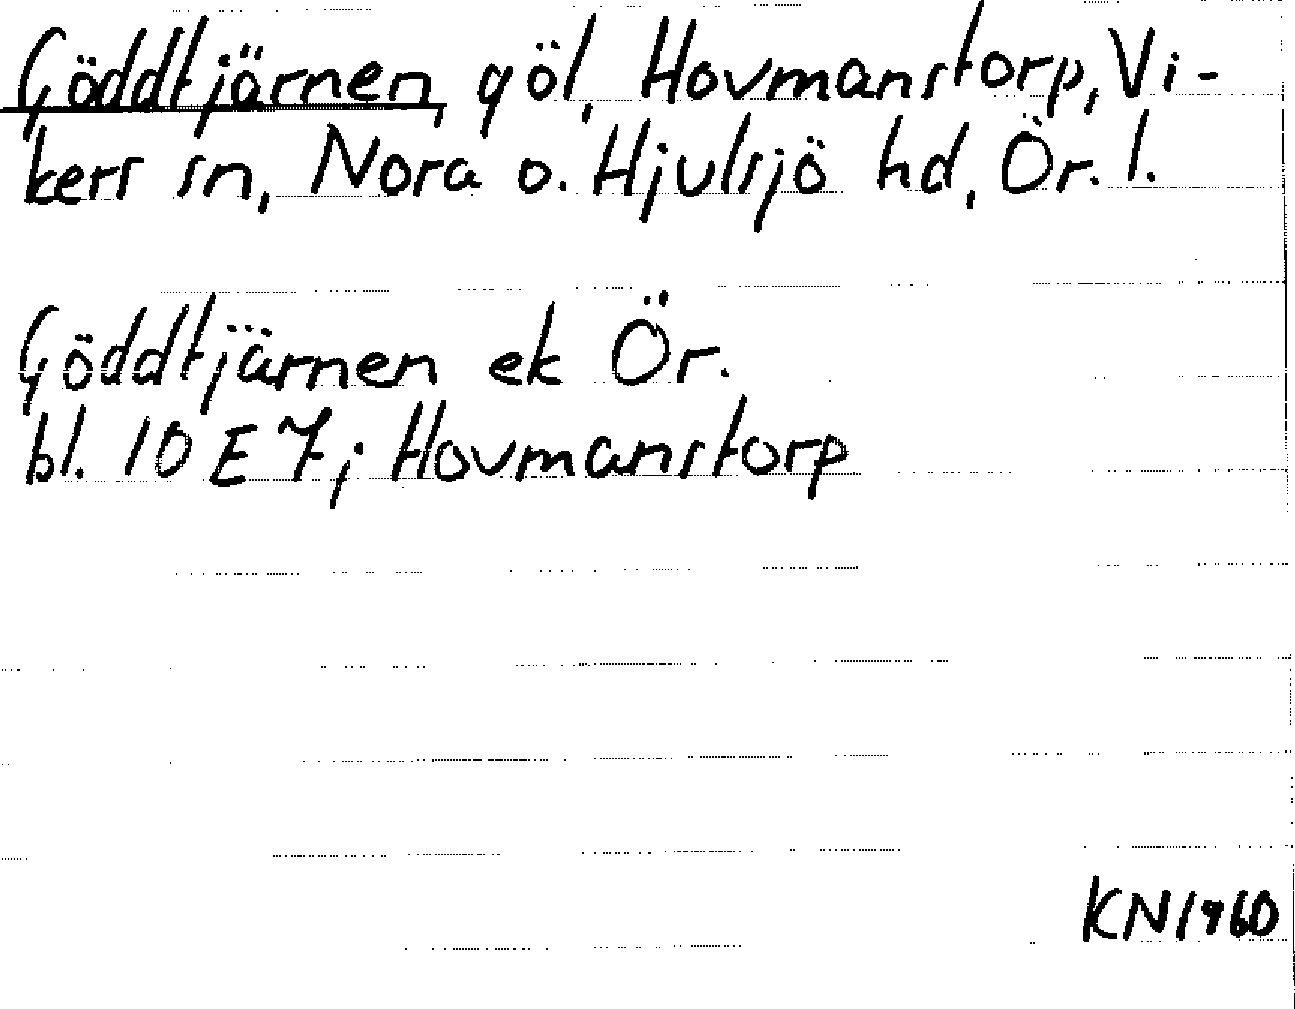 Göddtjärnen, göl, Hovmanstorp, Vi-
kers sn, Nora o. Hjulsjö hd, Ör. l.
Göddtjärnen ek Ör.
bl. 10 E 7; Hovmanstorp
KN 1960